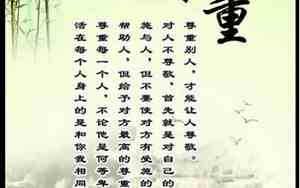 重
尊重别人，才能让人尊敬。
对人不尊敬，首先就是对自己的
施与人，但不要使对方有受施的
帮助人，但给予对方最高的尊重
尊重每一个人，不论他是何等卑
活在每个人身上的是和你我相同